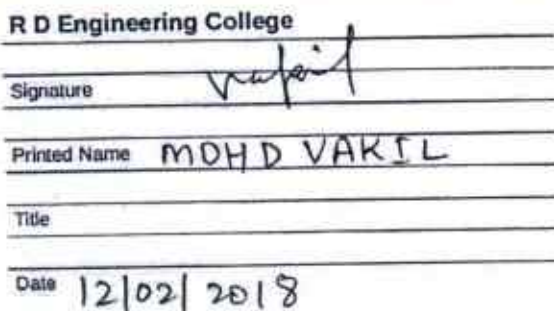 R D Engineering College
Signature
Printed Name MOHD VAKIL
Title
Date 12/02/2018